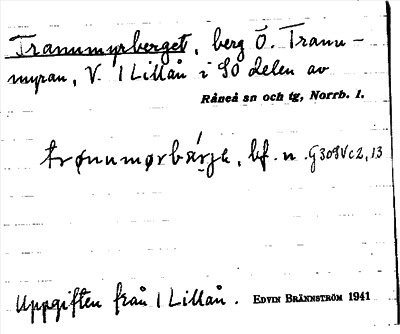 Tranumyrberget, berg Ö. Tranu-
myran, V. 1 Lillån i SO delen av
Råneå sn och tg, Norrb. l.
trønumørbárja, bf. n. G308Vc2,13
Uppgiften från 1 Lillån. EDVIN BRÄNNSTRÖM 1941